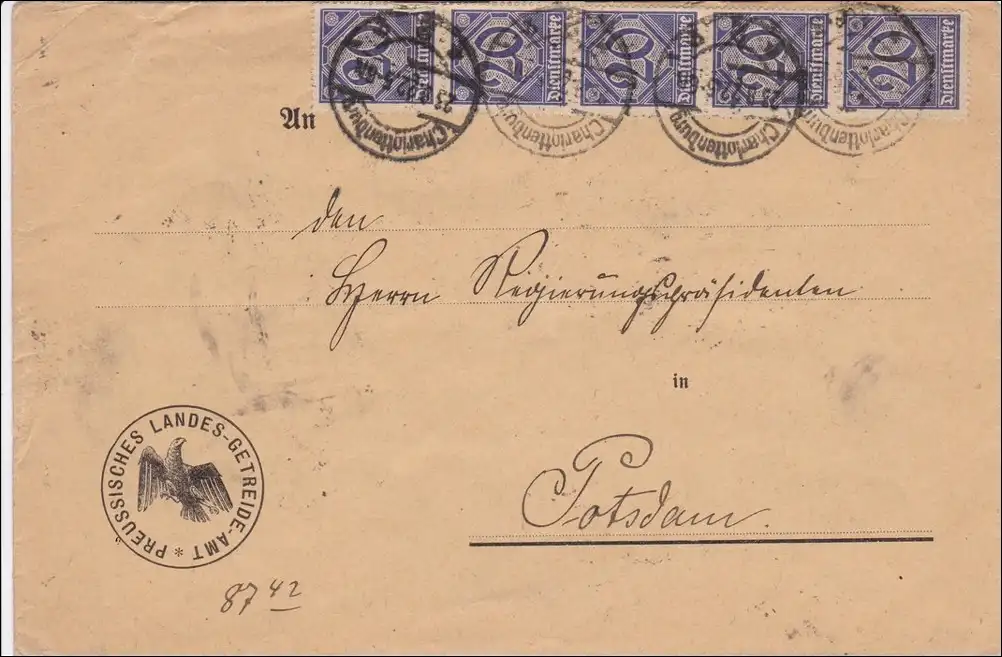 20 Dienstmarke 20 Dienstmarke 20 Dienstmarke 20 Dienstmarke 20 Dienstmarke
Charlottenburg Charlottenburg Charlottenburg Charlottenburg
An
den
Herrn Regierungspräsidenten
in
Potsdam.
PREUSSISCHES LANDES-GETREIDE-AMT *
87 42